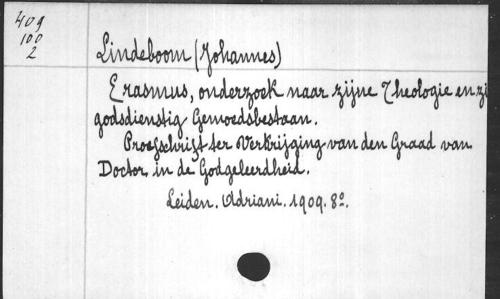 409
100
2
Lindeboom (Johannes)
Erasmus, onderzoek naar zijne Theologie en zi
godsdienstig Gemoedsbestaan.
Proefschrift ter Verkrijging van den Graad van
Doctor in de Godgeleerdheid.
Leiden. Adriani. 1909. 8º.